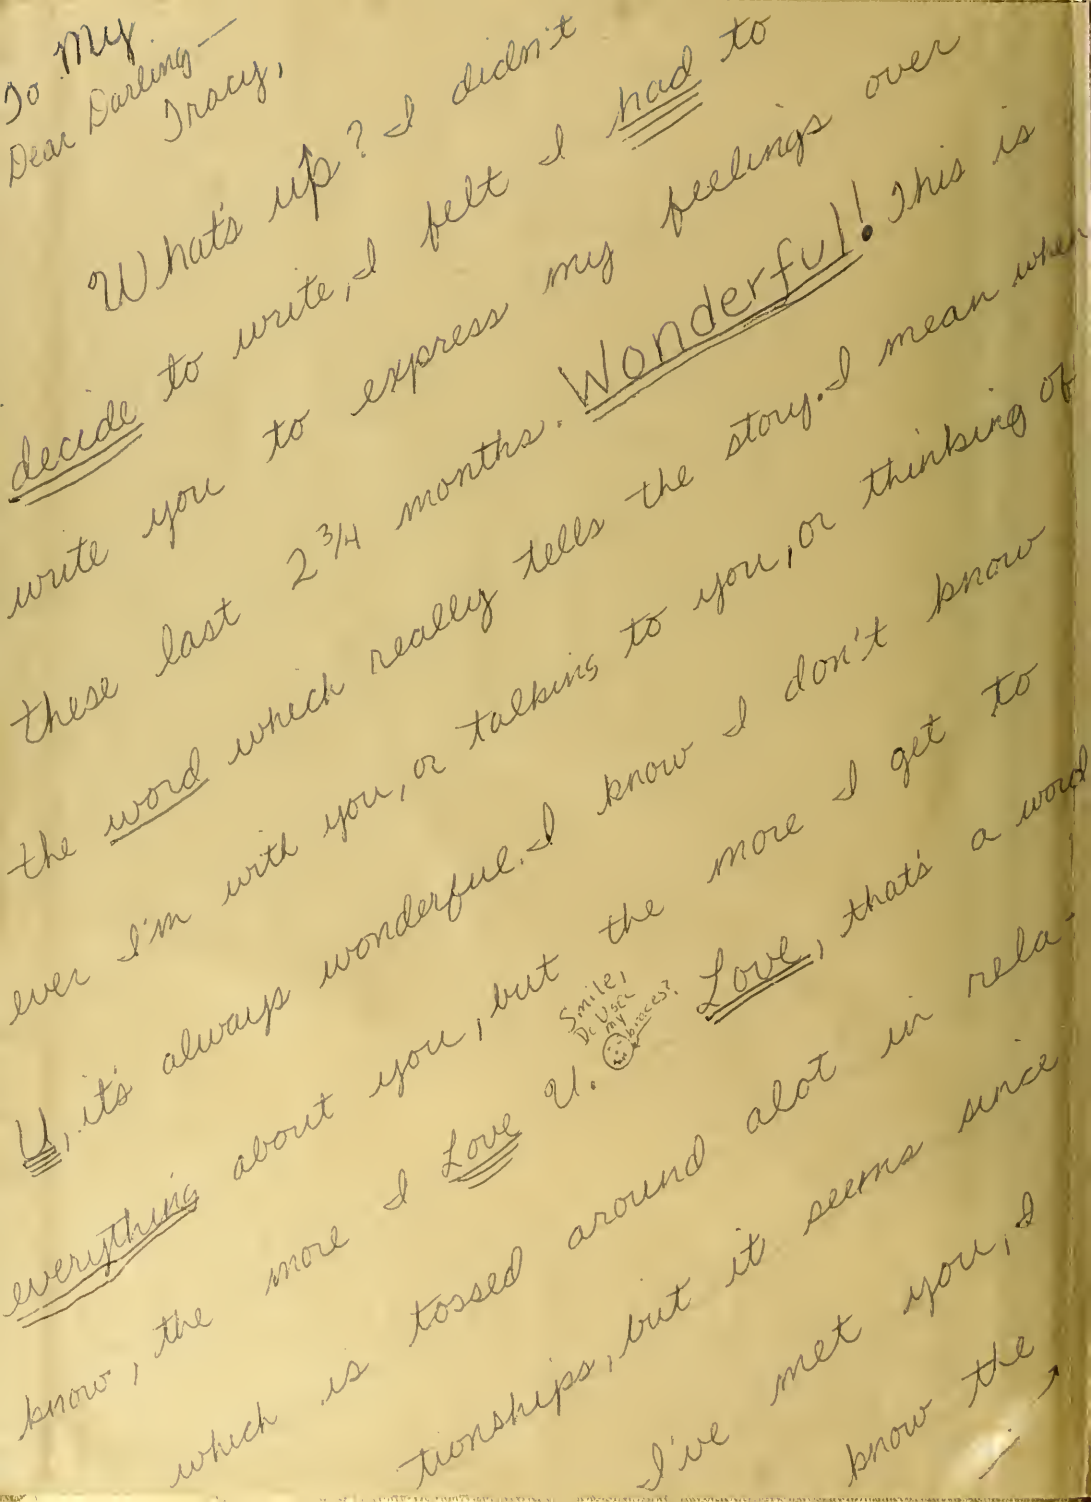 To My
Dear Darling—
Tracy,
What's up? I didn't
decide to write, I felt I had to
write you to express my feelings over
these last 2 3/4 months. Wonderful! This is
the word which really tells the story. I mean when
ever I'm with you, or talking to you, or thinking of
U, it's always wonderful. I know I don't know
everything about you, but the more I get to
know, the more I Love U. Love, that's a word
Smile,
Do U see
my
braces?
which is tossed around alot in rela-
tionships, but it seems since
I've met you, I
know the